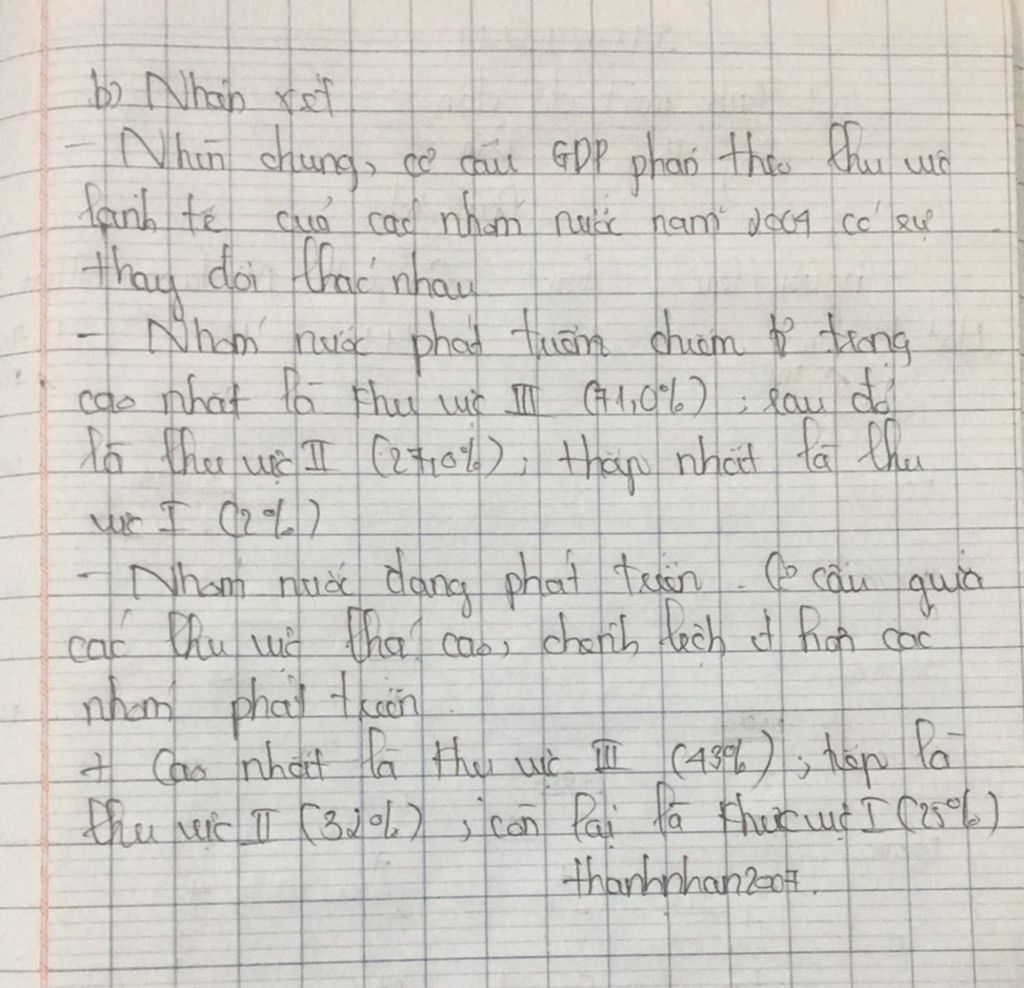 b) Nhận xét
- Nhìn chung, cơ cấu GDP phân theo khu vực
kinh tế của các nhóm nước năm 2004 có sự
thay đổi khác nhau
- Nhóm nước phát triển chiếm tỉ trọng
cao nhất là khu vực III (71,0%), sau đó
là khu vực II (27,0%), thấp nhất là khu
vực I (2%)
- Nhóm nước đang phát triển. Cơ cấu giữa
các khu vực khá cao, chênh lệch ít hơn các
nhóm phát triển
+ Cao nhất là khu vực III (43%), tiếp là
khu vực II (32%), còn lại là khu vực I (25%)
thanhphan2007.